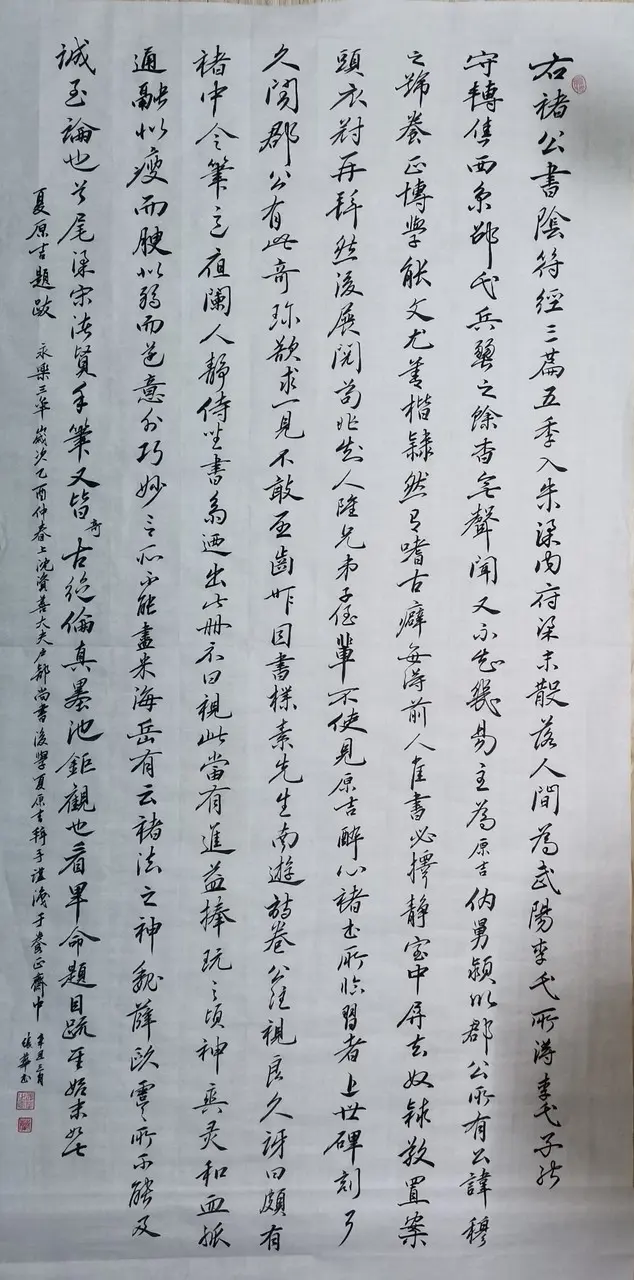 右褚公書陰符經三篇五季入朱梁內府梁末散落人間為武陽李氏所得李氏子孫
守轉售西京邵氏兵燹之餘杳無聲聞又不知幾易主為原吉伯舅潁川郡公所有公諱穆
之號養正博學能文尤善楷隸然有嗜古癖每得前人佳書必擇靜室中屏去奴隸教置案
頭衣對再拜然後展閱苟非知人雖兄弟子侄輩不使見原吉醉心褚書所臨習者上世碑刻
久聞郡公有此奇珍欲求一見不敢至齒昨因書樣素先生南遊詩卷公注視良久訝曰頗有
褚中令筆意夜闌人靜侍坐書齋迺出此冊示曰視此當有進益捧玩之頃神與靈和血脈
通融似瘦而腴似弱而遒意外巧妙言所不能盡米海岳有云褚法之神魏薛歐虞所不能及
誠至論也首尾梁宋諸賢手筆又皆奇古絕倫真墨池鉅觀也看畢命題目疏呈始末如此
夏原吉題跋 永樂三年歲次乙酉仲春上沈資善大夫戶部尚書後學夏原吉拜手謹識于養正齋中
辛丑三月